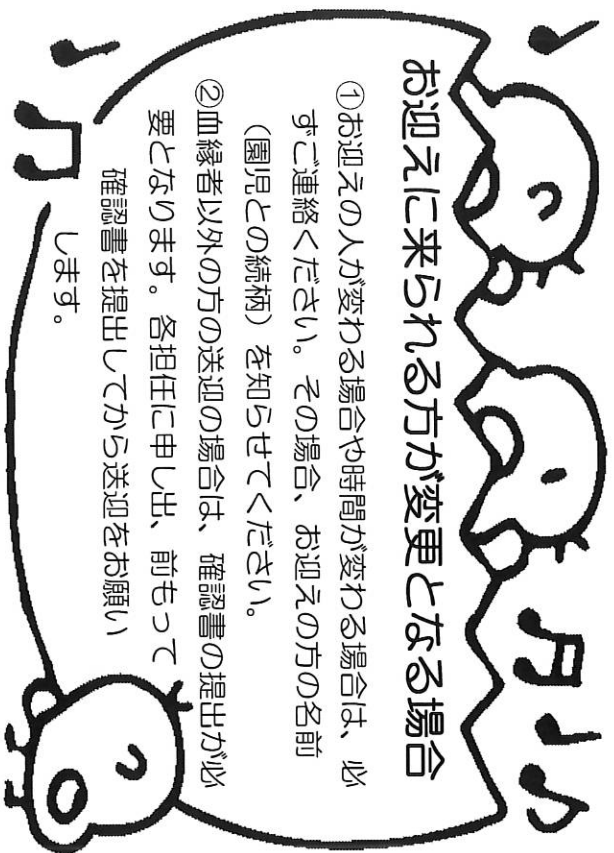 お迎えに来られる方が変更となる場合
①お迎えの人が変わる場合や時間が変わる場合は、必
ずご連絡ください。その場合、お迎えの方の名前
（園児との続柄）を知らせてください。
②血縁者以外の方の送迎の場合は、確認書の提出が必
要となります。各担任に申し出、前もって
確認書を提出してから送迎をお願い
します。